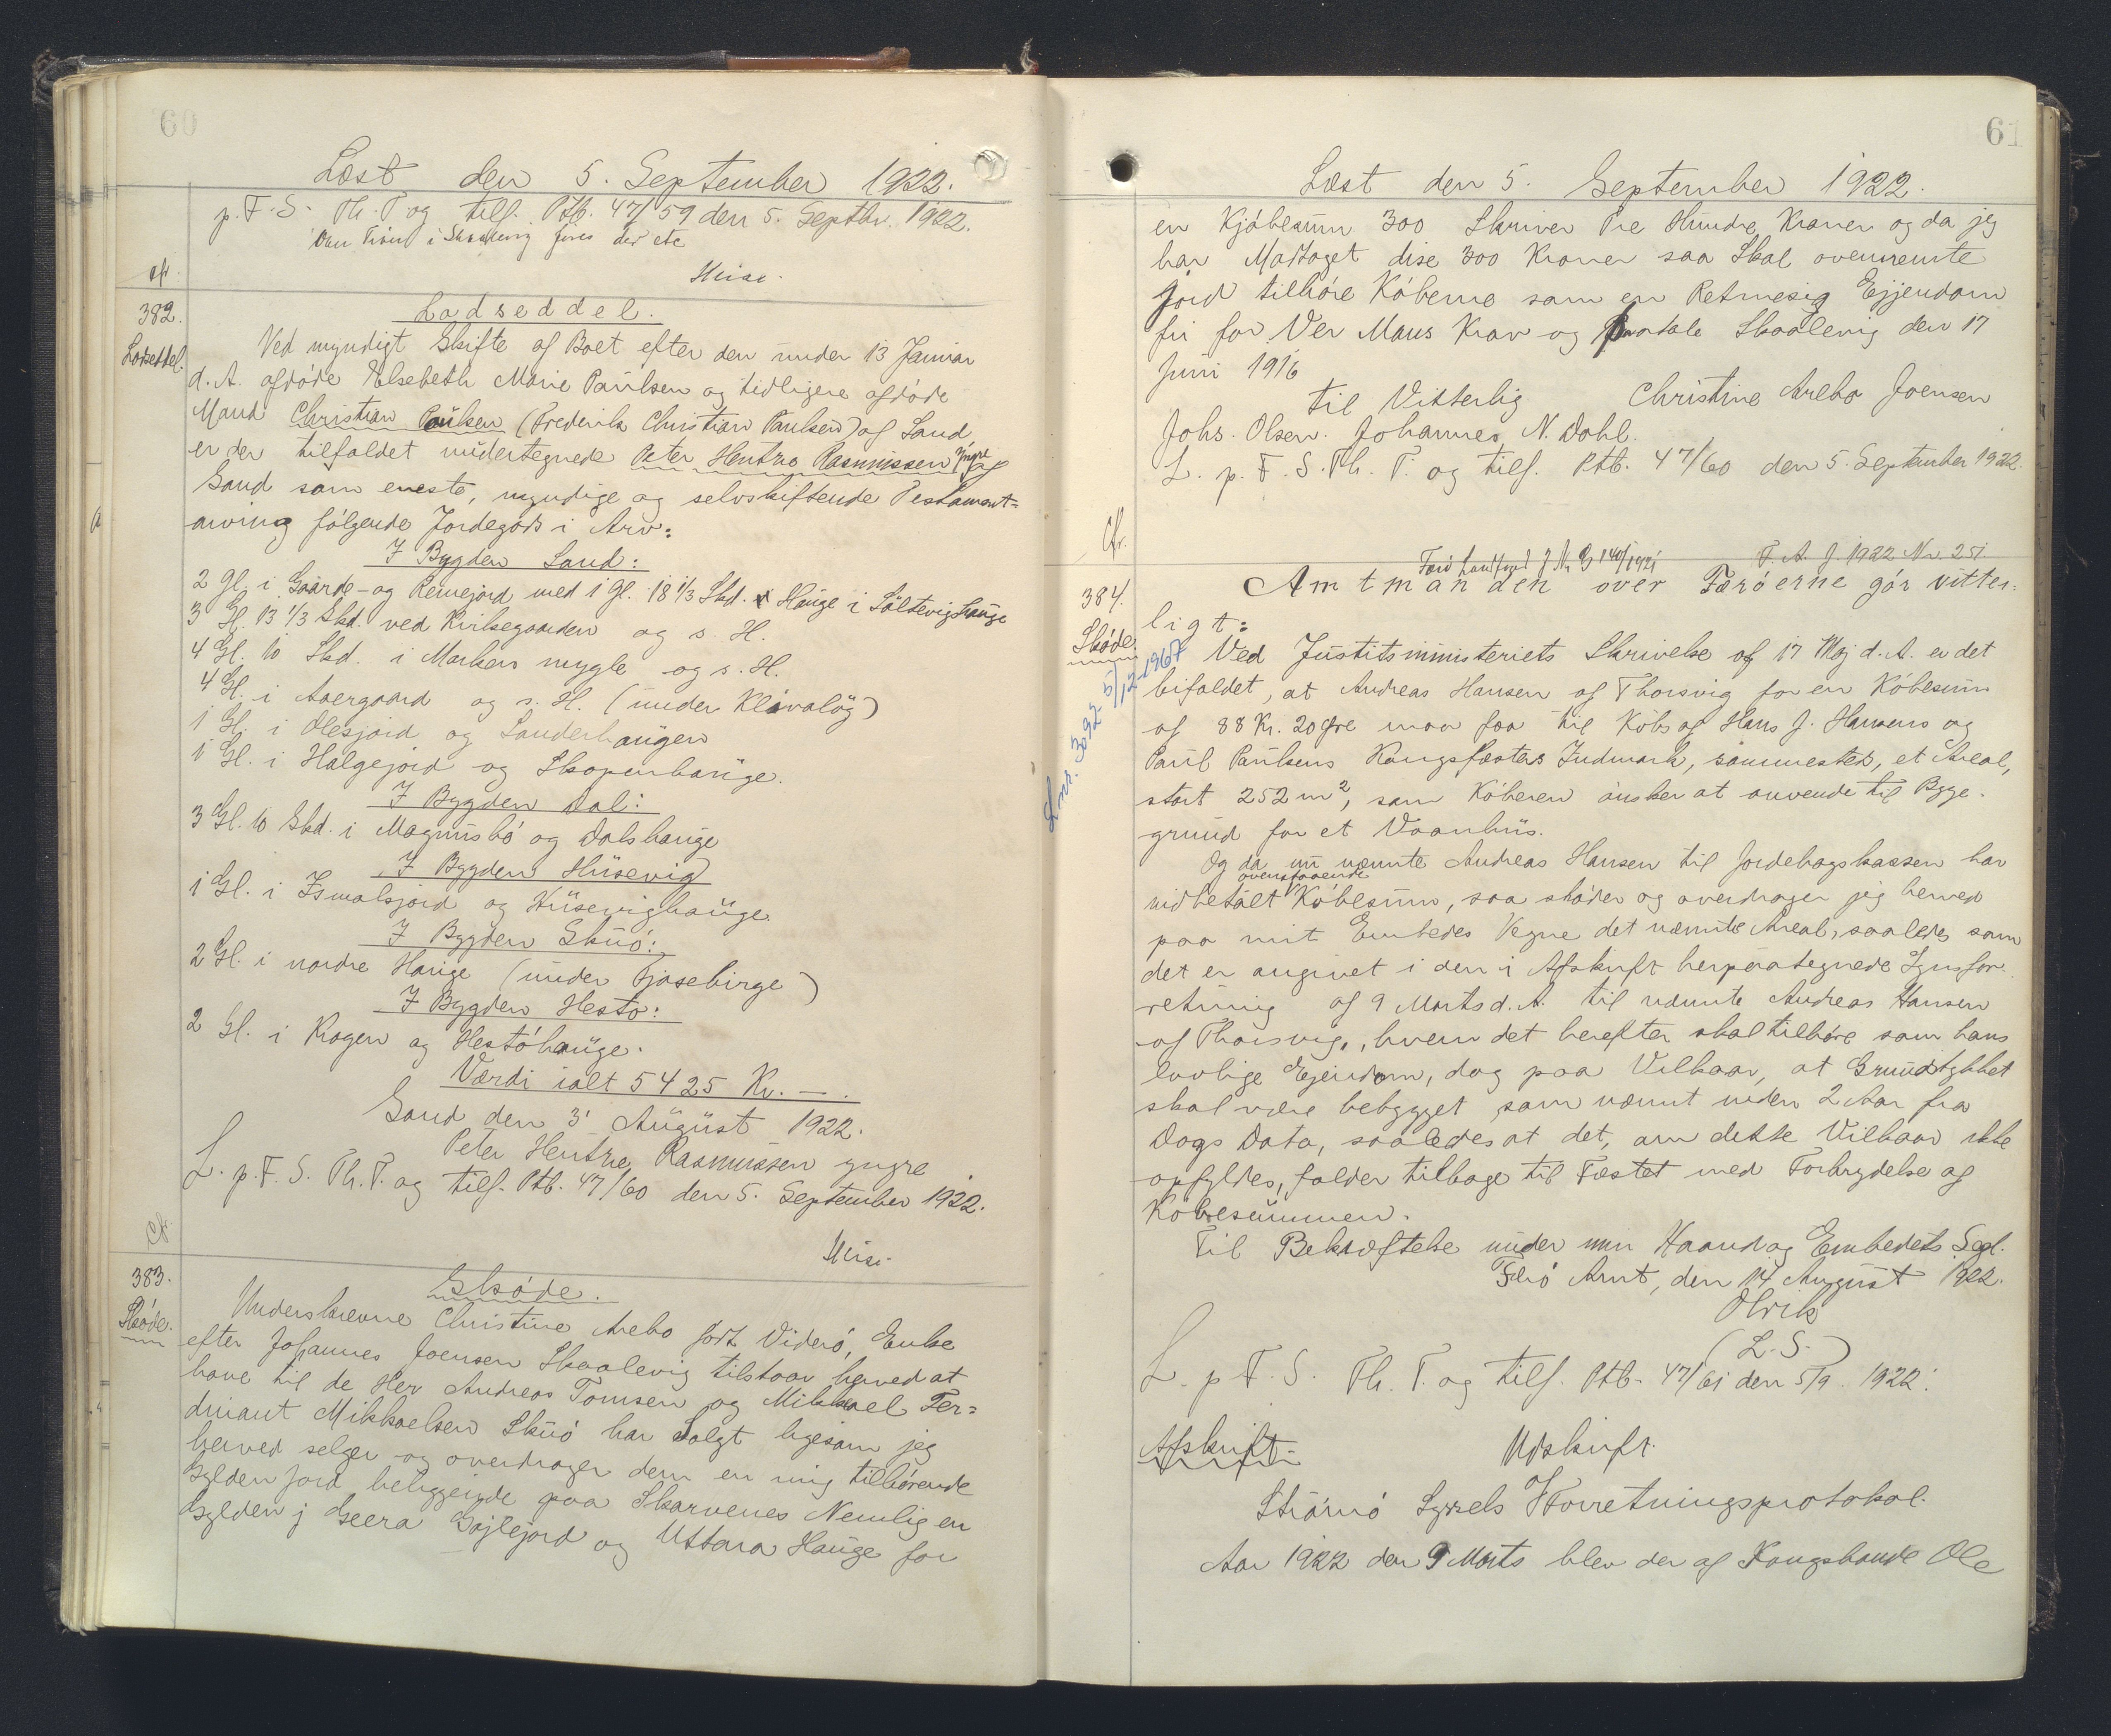 60
Læst den 5. September 1922.
p. F. S. Th. T. og tilf. Ptb. 47/59 den 5. Septbr. 1922.
cfr.
382.
Lodseddel.
Lodseddel.
Ved myndigt Skifte af Boet efter den under 13 Januar
d. A. afdøde Elsebeth Marie Paulsen og tidligere afdøde
Mand Christian Paulsen (Frederik Christian Paulsen) af Sand
er der tilfaldet undertegnede Peter Hentze Rasmussen yngre af
Sand som eneste, myndige og selvskiftende Testament-
arving følgende Jordegods i Arv:
I Bygden Sand:
2 Gl. i Gaarde- og Reinejord med 1 Gl. 18 1/3 Skd. Hauge i Søltevigshauge
3 Gl. 13 1/3 Skd. ved Kirkegaarden og s. H.
4 Gl. 10 Skd. i Marken mygle og s. H.
4 Gl. i Aaergaard og s. H. (under Kleivaløg)
1 Gl. i Olesjord og Sanderhaugen
1 Gl. i Halgejord og Skopenhauge.
I Bygden Dal:
3 Gl. 10 Skd. i Magnusbø og Dalshauge
I Bygden Husevig
1 Gl. i Ismalsjord og Husevighauge.
I Bygden Skuø:
2 Gl. i nordre Hauge (under Fjosebirge)
I Bygden Hestø:
2 Gl. i Krogen og Hestøhauge.
Værdi ialt 5425 Kr. —.
Sand den 3' August 1922.
Peter Hentze Rasmussen yngre
L. p. F. S. Th. T. og tilf. Ptb. 47/60 den 5. September 1922.
Cfr.
383.
Skøde.
Skøde.
Underskrevne Christine Arebo født Viderø, Enke
efter Johannes Joensen Skaalevig tilstaar herved at
have til de Her Andreas Tomsen og Mikkael Fer-
dinant Mikkaelsen Skuø har Solgt ligesom jeg
herved selger og overdrager dem en mig tilhørende
Gylden Jord beliggende paa Skarvenes Nemlig en
Gylden j Geera Gojlejord og Uttara Hauge for
61
Læst den 5. September 1922.
en Kjøbesum 300 Skriver Tre Hundre Kroner og da jeg
har Mottaget dise 300 Kroner saa Skal ovennemte
Jord tilhøre Køberne som en Retmesig Ejjendom
fri for Ver Mans Krav og Paatale Skaalevig den 17
Juni 1916
Til Vitterlig Christine Arebo Joensen
Johs. Olsen. Johannes N. Dahl.
L. p. F. S. Th. T. og tilf. Ptb. 47/60 den 5. September 1922.
Cfr.
F. A. J. 1922 Nr. 251
384.
Skøde
Amtmanden over Færøerne gør vitter-
ligt:
Ved Justitsministeriets Skrivelse af 17 Maj d. A. er det
bifaldet, at Andreas Hansen af Thorsvig for en Købesum
af 88 Kr. 20 Øre maa faa til Købs af Hans J. Hansens og
Paul Paulsens Kongsfæsters Indmark, sammesteds, et Areal,
stort 252 m², som Køberen ønsker at anvende til Bygge-
grund for et Vaanhus.
Og da nu nævnte Andreas Hansen til Jordebogskassen har
indbetalt ovenstaaende Købesum, saa skøder og overdrager jeg herved
paa mit Embedes Vegne det nævnte Areal, saaledes som
det er angivet i den i Afskrift herpaategnede Synsfor-
retning af 9 Marts d. A. til nævnte Andreas Hansen
af Thorsvig, hvem det herefter skal tilhøre som hans
lovlige Ejendom, dog paa Vilkaar, at Grundstykket
skal være bebygget som nævnt inden 2 Aar fra
Dags Dato, saaledes at det, om dette Vilkaar ikke
opfyldes, falder tilbage til Fæstet med Forbrydelse af
Købesummen.
Til Bekræftelse under min Haand og Embedets Segl.
Færø Amt, den 14 August 1922.
Olrik
(L. S.)
L. p F. S. Th. T. og tilf. Ptb. 47/61 den 5/9 1922.
Afskrift. Udskrift.
Strømø Syssels Forretningsprotokol.
Aar 1922 den 9 Marts blev der af Kongsbonde Ole
Lnr. 3092 5/12-1967